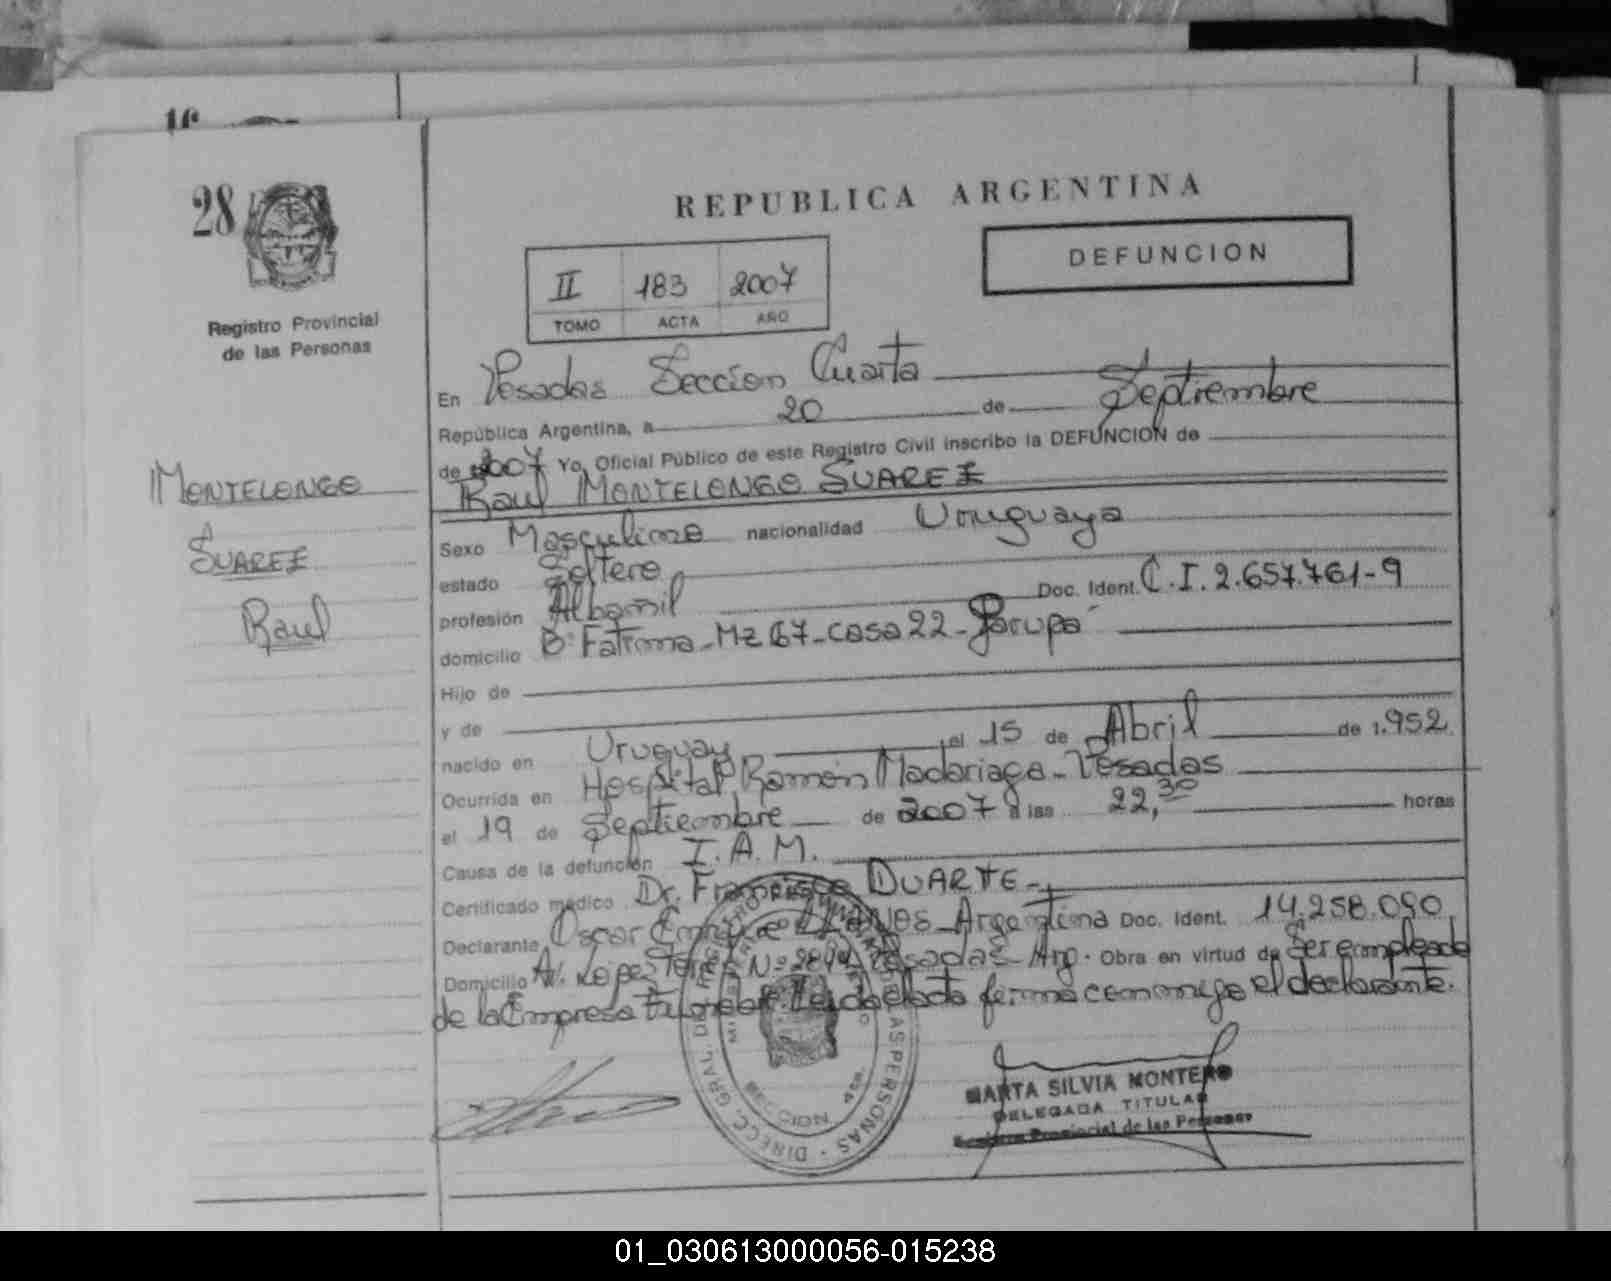 16
28
REPUBLICA ARGENTINA
DEFUNCION
II 183 2007
TOMO ACTA AÑO
Registro Provincial
de las Personas
MONTELONGO
SUAREZ
Raul
En Posadas Sección Cuarta
República Argentina, a 20 de Septiembre
de 2007 Yo, Oficial Público de este Registro Civil inscribo la DEFUNCION de
Raul MONTELONGO SUAREZ
Sexo Masculino nacionalidad Uruguaya
estado Soltero
profesión Albañil Doc. Ident. C.I. 2.657.761-9
domicilio B° Fatima - Mz 67 - casa 22 - Garupá
Hijo de
y de
nacido en Uruguay el 15 de Abril de 1.952
Ocurrida en Hospital Ramón Madariaga - Posadas
el 19 de Septiembre de 2007 a las 22,30 horas
Causa de la defunción I.A.M.
Certificado médico Dr. Francisco DUARTE
Declarante Oscar Argentina Doc. Ident. 14.258.090
Domicilio Av. Lopez Torres N° Posadas - Arg. Obra en virtud de Ser empleado
de la Empresa Leida el acta firma conmigo el declarante.
DIRECC. GRAL. DE PERSONAS
SECCION 4ta.
MARTA SILVIA MONTERO
DELEGADA TITULAR
Registro Provincial de las Personas
01_030613000056-015238